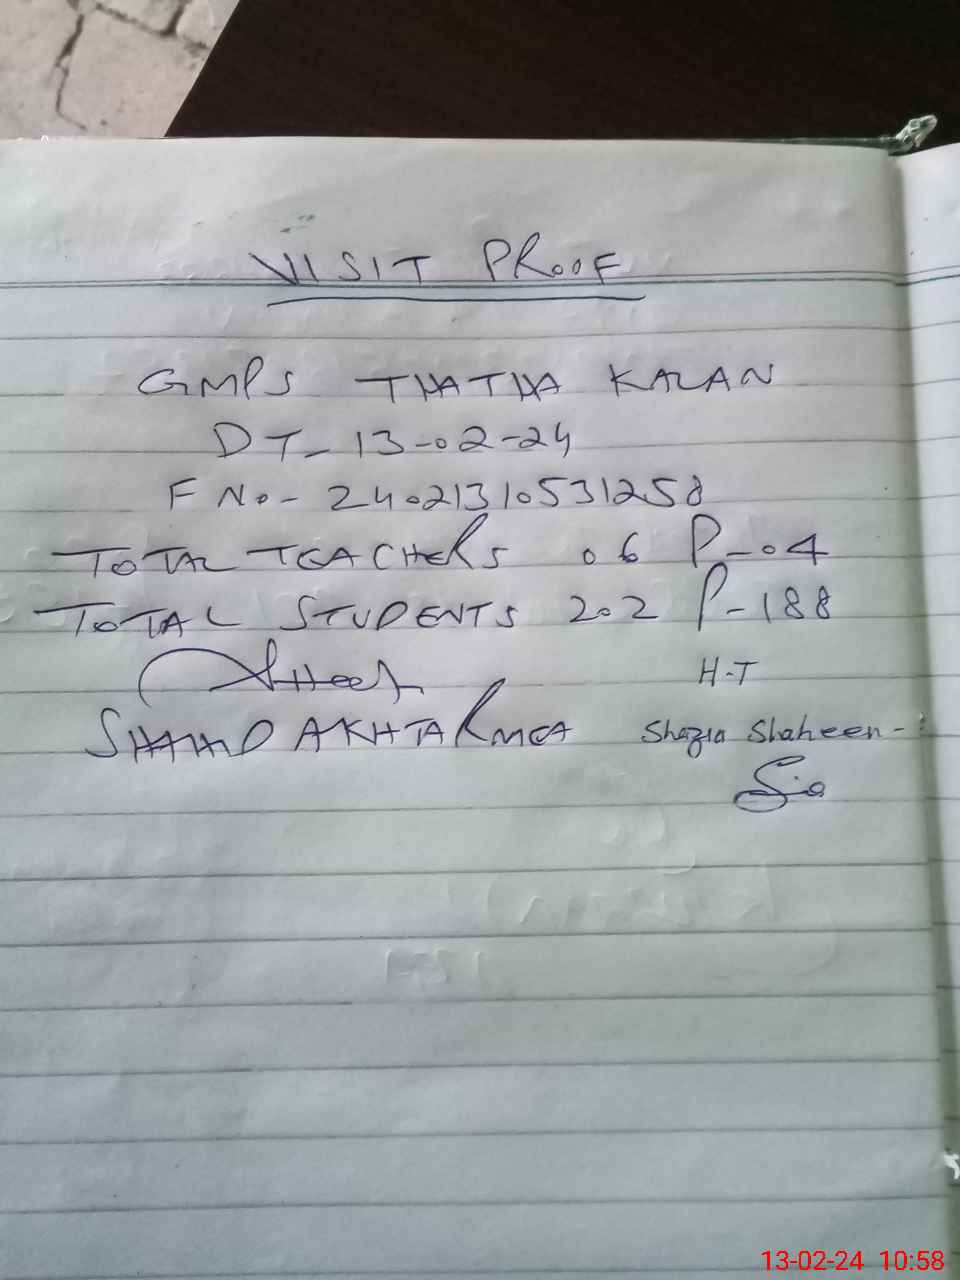 VISIT PROOF
GMPS THATHA KALAN
DT- 13-02-24
F No- 24021310531258
TOTAL TEACHERS 06 P-04
TOTAL STUDENTS 202 P-188
H-T
SHAHID AKHTAR MEA Shazia Shaheen-
13-02-24 10:58